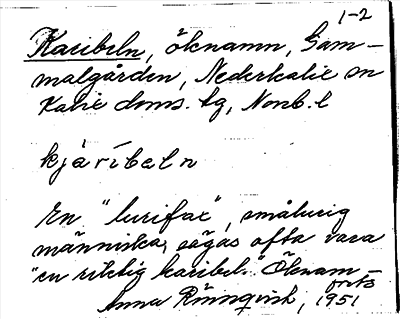 1-2
Karibeln, öknamn, Gam-
malgården, Nederkalix sn
Kalix doms. hg, Nonb. l
kjäríbeln
En "lurifax", smålurig
människa, sägas ofta vara
"en riktig karibel." Öknam-
forts
Anna Rönnqvist, 1951